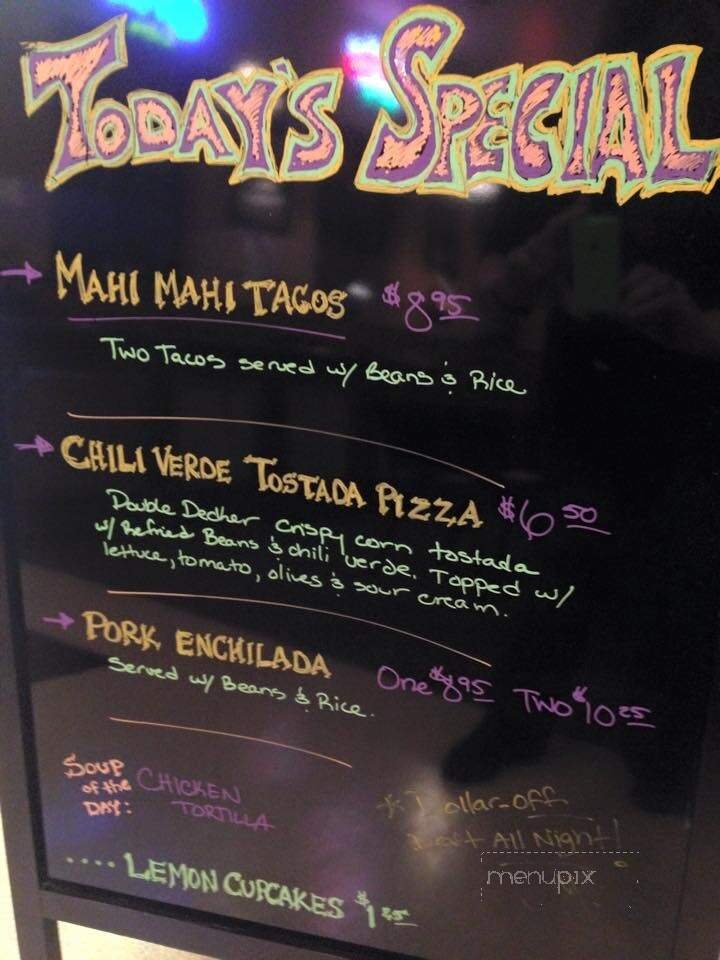 TODAY'S SPECIAL
MAHI MAHI TACOS $8.95
Two Tacos served w/ Beans & Rice
CHILI VERDE TOSTADA PIZZA $6.50
Double Decker crispy corn tostada
w/ Refried Beans & chili verde. Topped w/
lettuce, tomato, olives & sour cream.
PORK ENCHILADA One $8.95 Two $10.25
Served w/ Beans & Rice.
SOUP of the DAY: CHICKEN TORTILLA
* Dollar-off
All Night!
.... LEMON CUPCAKES $1
menupix